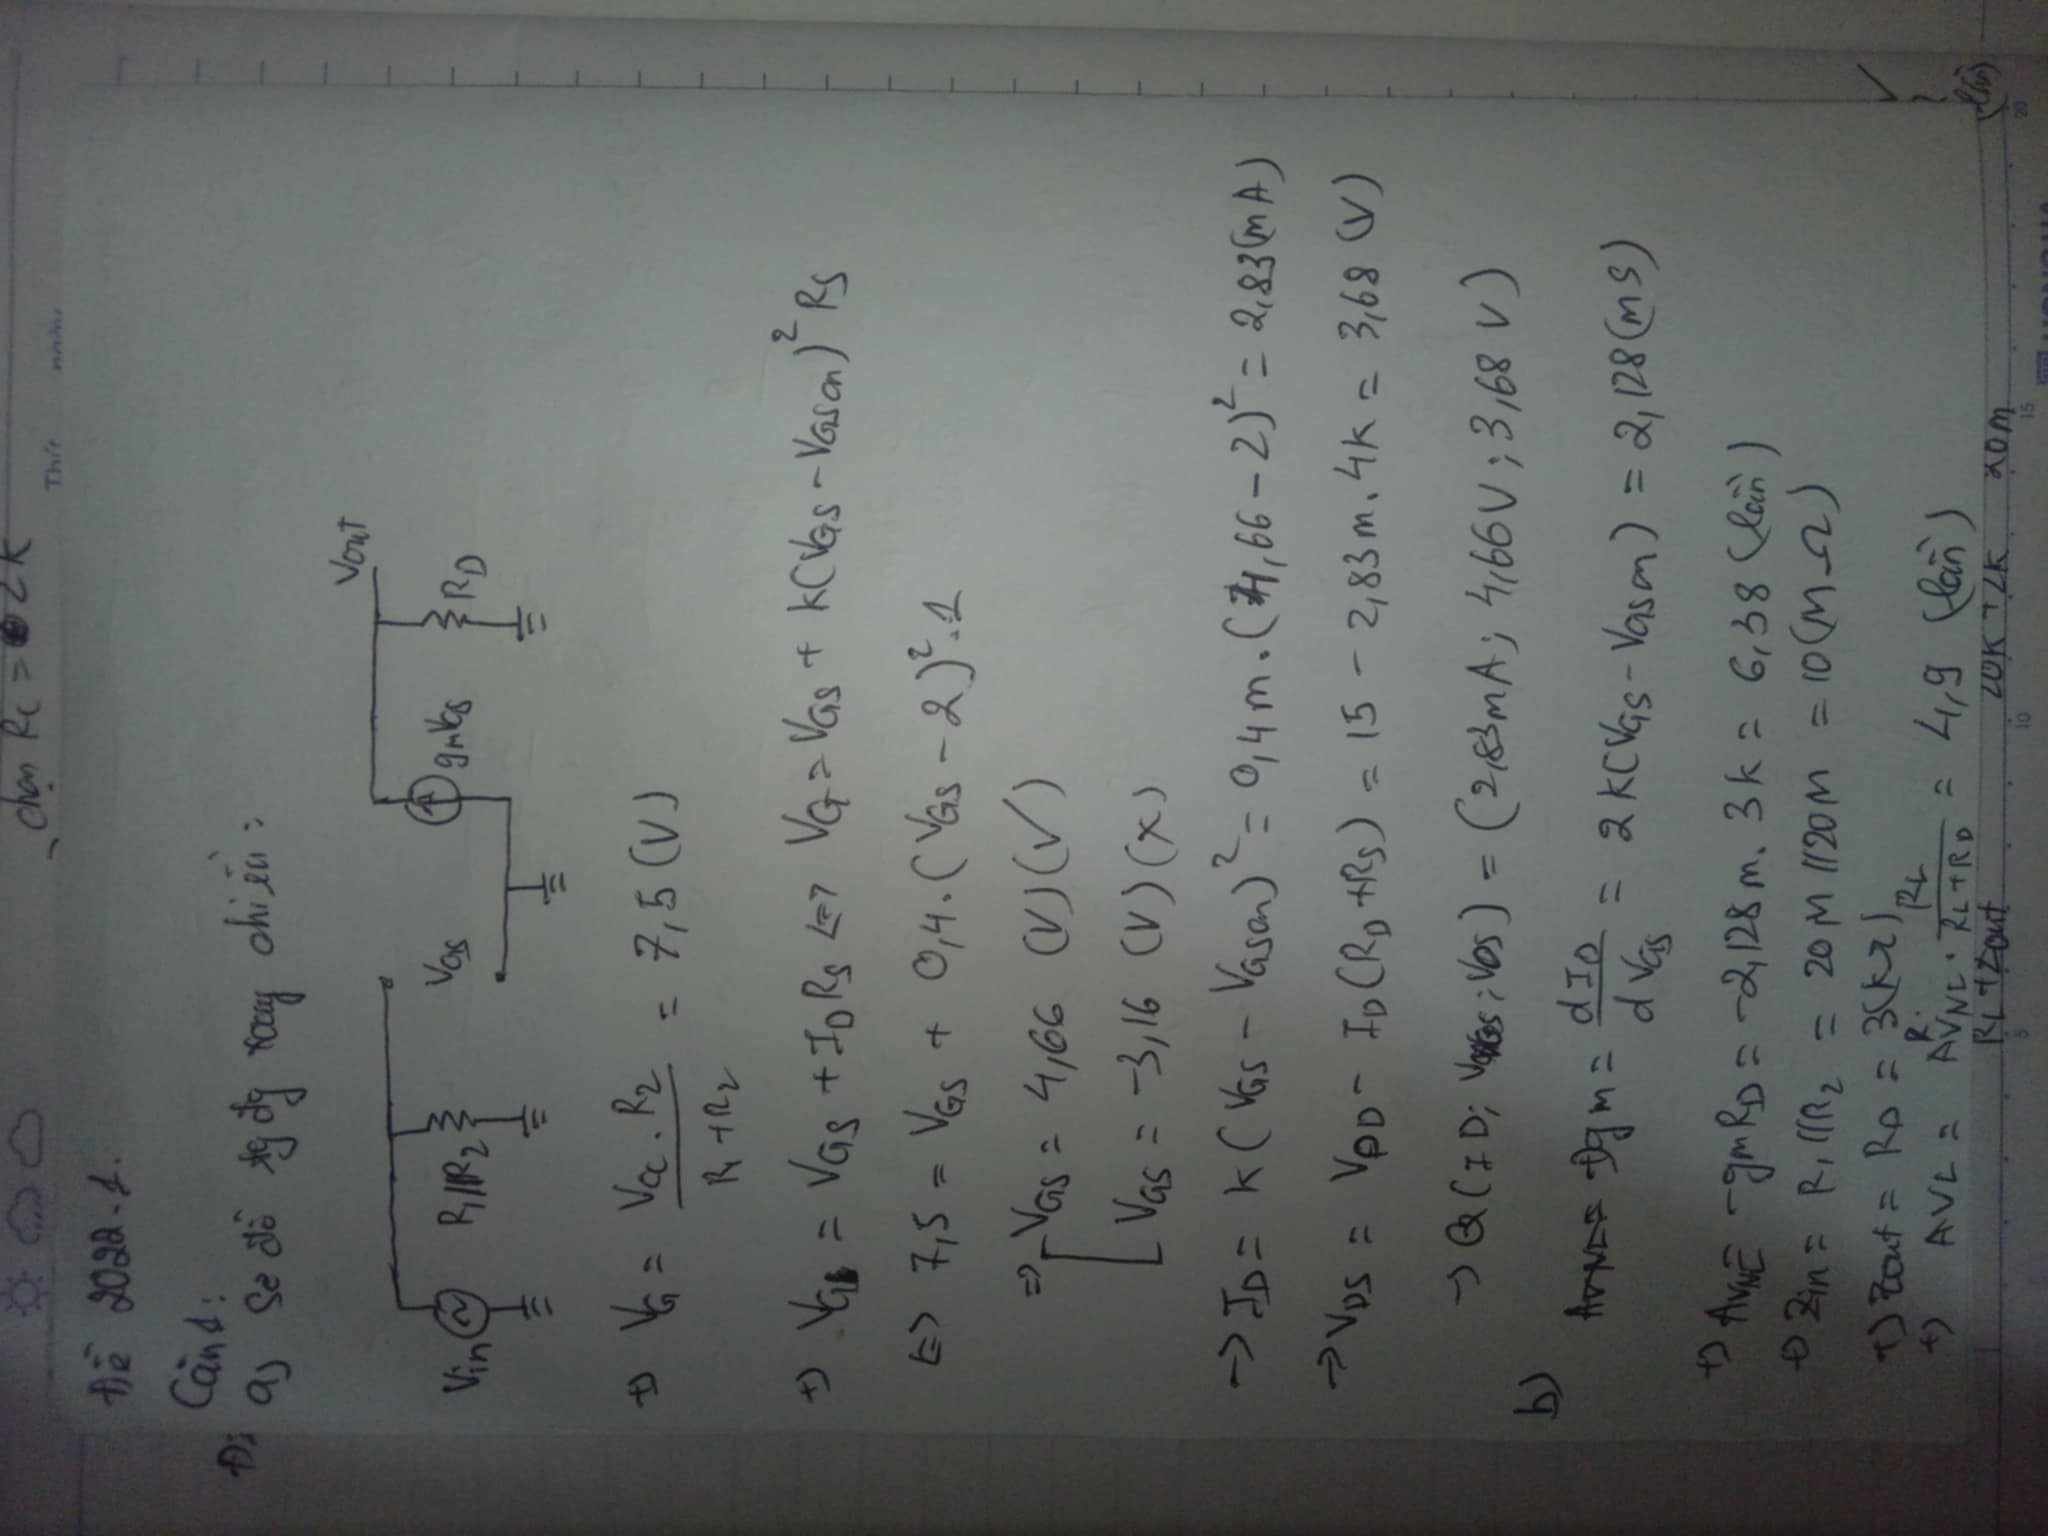 chọn Rc = 2K
Thứ
Đề 2022.1.
Câu 1:
a) Sơ đồ tg đg xoay chiều:
Vout
Vin
R1//R2
VGS
gmVGS
RD
+) VG = Vcc.R2 / R1+R2 = 7,5 (V)
+) VG = VGS + IDRS <=> VG = VGS + K(VGS - VGSon)² RS
<=> 7,5 = VGS + 0,4.(VGS - 2)².1
=> VGS = 4,66 (V) (✓)
VGS = -3,16 (V) (x)
-> ID = K(VGS - VGSon)² = 0,4m.(4,66 - 2)² = 2,83(mA)
-> VDS = VDD - ID(RD+RS) = 15 - 2,83m.4K = 3,68 (V)
-> Q(ID; VGS; VDS) = (2,83mA; 4,66V; 3,68 V)
b)
gm = dID / dVGS = 2K(VGS - VGSon) = 2,128(mS)
+) AVNL = -gmRD = -2,128m.3K = 6,38 (lần)
+) Zin = R1//R2 = 20M//20M = 10(MΩ)
+) Zout = RD = 3(KΩ)
+) AVL = AVNL . RL / RL+RD = 4,9 (lần)
RL+Zout 20m (lần)
5 10 15 20